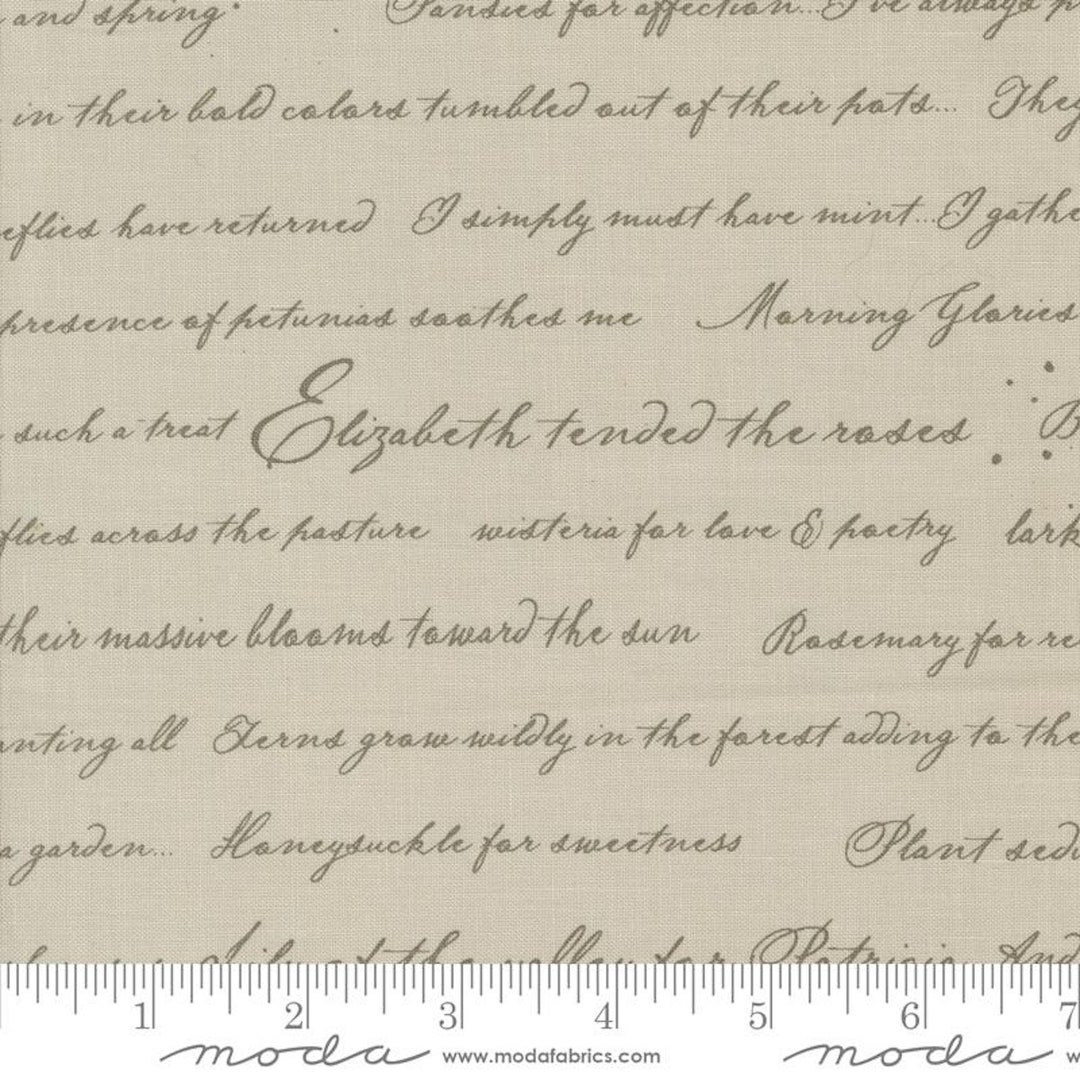 and spring Pansies for affection...I've always
in their bold colors tumbled out of their pots... They
eflies have returned I simply must have mint...I gathe
presence of petunias soothes me Morning Glories
such a treat Elizabeth tended the roses B
flies across the pasture wisteria for love & poetry lark
their massive blooms toward the sun Rosemary for re
nting all Ferns grow wildly in the forest adding to the
a garden... Honeysuckle for sweetness Plant sedu
Lily of the valley for Patricia And
1 2 3 4 5 6 7
moda www.modafabrics.com moda w